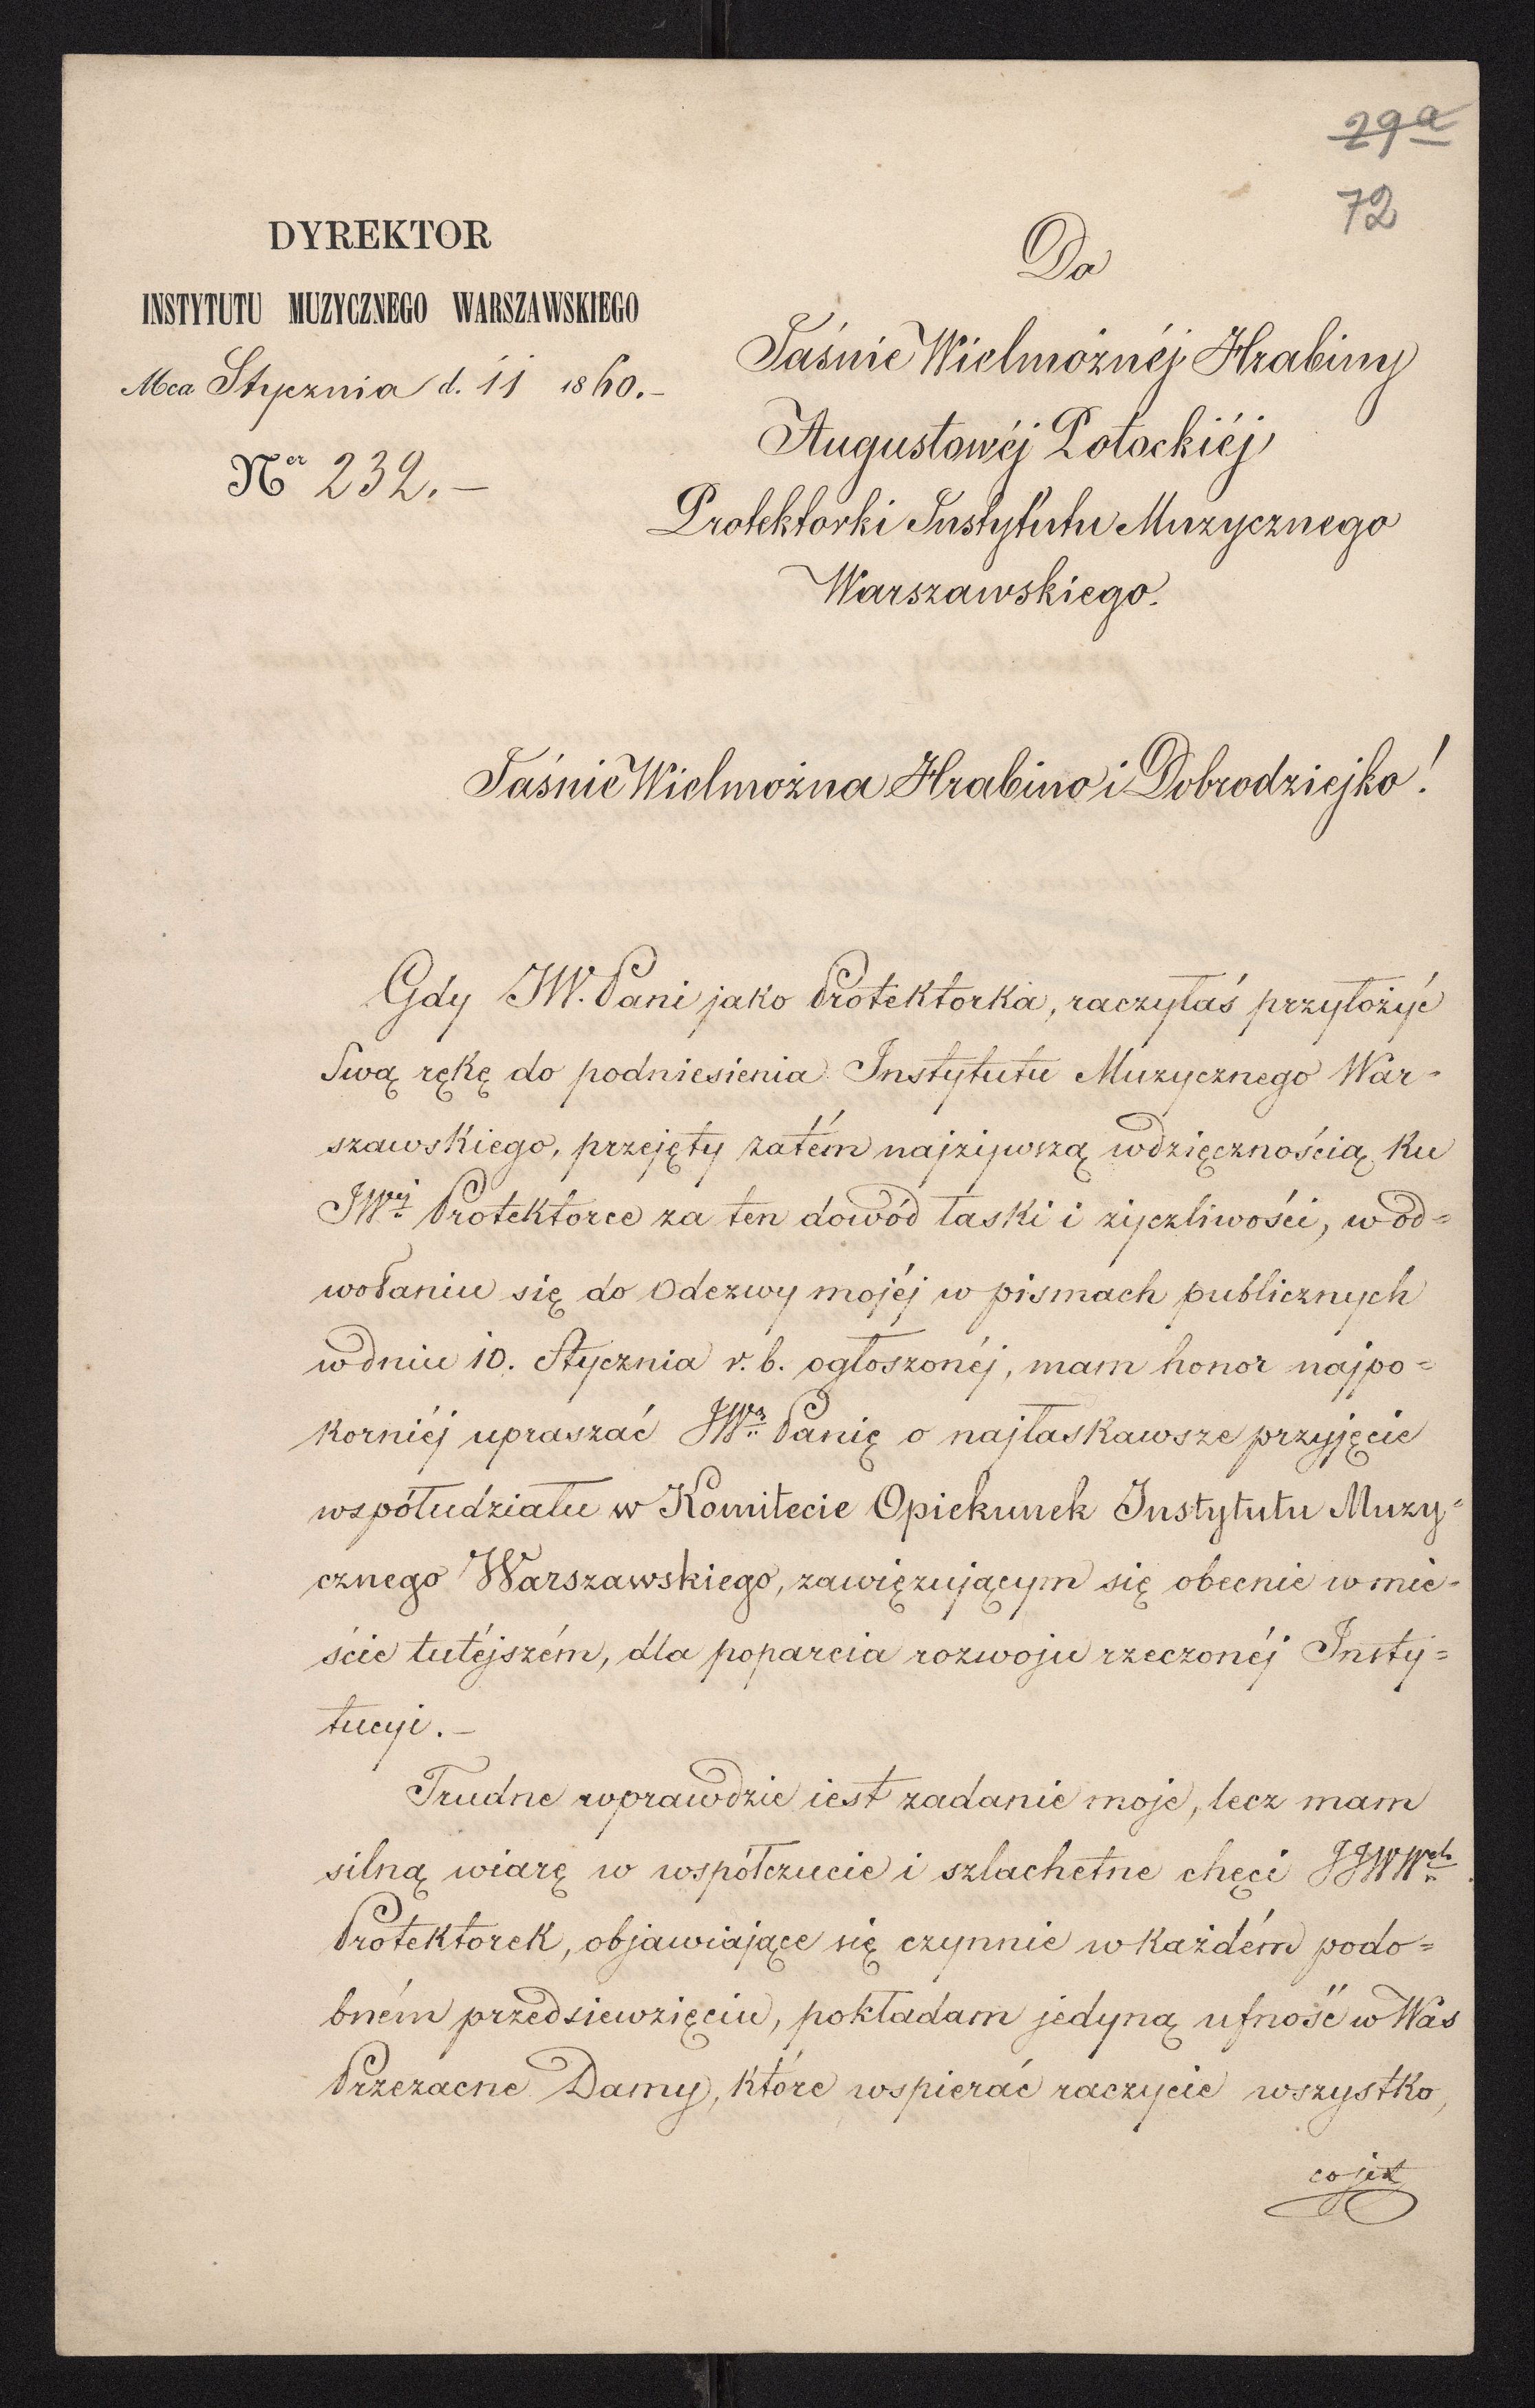 29a
72
DYREKTOR
INSTYTUTU MUZYCZNEGO WARSZAWSKIEGO
Mca Stycznia d. 11 1860.-
Ner 232.-
Do
Jaśnie Wielmożnéj Hrabiny
Augustowéj Potockiéj
Protektorki Instytutu Muzycznego
Warszawskiego.
Jaśnie Wielmożna Hrabino i Dobrodziejko!
Gdy JW. Pani jako Protektorka, raczyłaś przyłożyć
Swą rękę do podniesienia Instytutu Muzycznego War=
szawskiego, przejęty zatém najżywszą wdzięcznością ku
JWéj Protektorce za ten dowód łaski i życzliwości, w od=
wołaniu się do Odezwy mojéj w pismach publicznych
w dniu 10. Stycznia r. b. ogłoszonéj, mam honor najpo=
korniéj upraszać JWą Panię o najłaskawsze przyjęcie
współudziału w Komitecie Opiekunek Instytutu Muzy=
cznego Warszawskiego, zawięzującym się obecnie w mie=
ście tutéjszém, dla poparcia rozwoju rzeczonéj Insty=
tucyi.-
Trudne wprawdzie iest zadanie moje, lecz mam
silną wiarę w współczucie i szlachetne chęci JJWWch
Protektorek, objawiające się czynnie w każdém podo=
bném przedsiewzięciu, pokładam jedyną ufność w Was
Przezacne Damy, które wspierać raczycie wszystko,
co jest